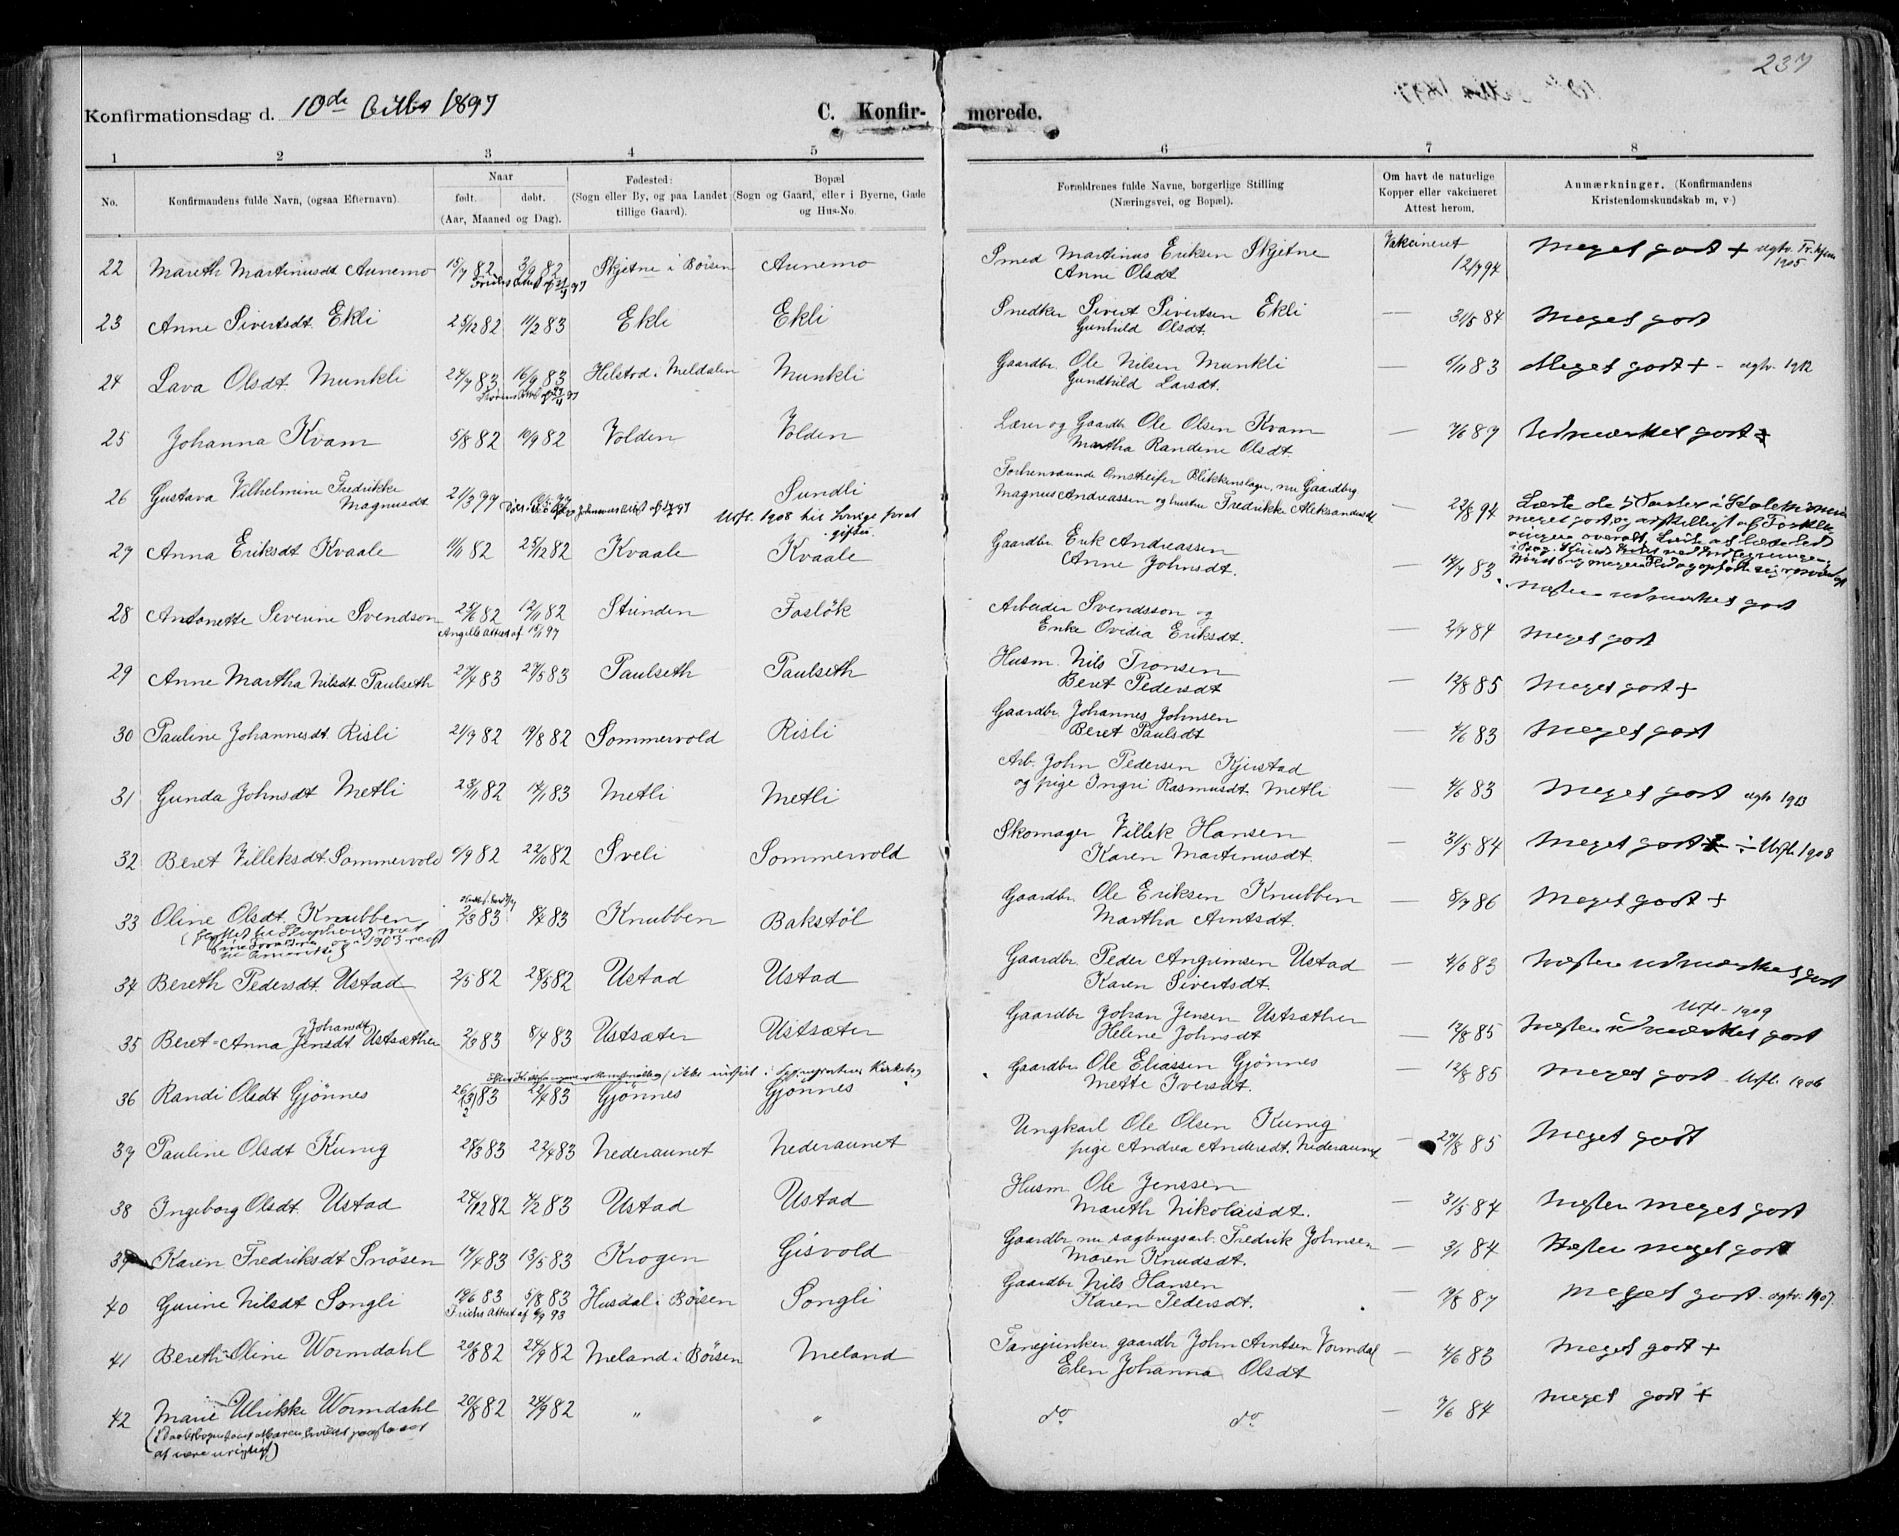 237
Konfirmationsdag d. 10de Octbr 1897
C. Konfirmerede.
1 2 3 4 5 6 7 8
No.
Konfirmandens fulde Navn, (ogsaa Efternavn)
Naar
født. døbt.
(Aar, Maaned og Dag).
Fødested:
(Sogn eller By, og paa Landet
tillige Gaard).
Bopæl
(Sogn og Gaard, eller i Byerne, Gade
og Hus-No.
Forældrenes fulde Navne, borgerlige Stilling
(Næringsvei, og Bopæl).
Om havt de naturlige
Kopper eller vakcineret
Attest herom.
Anmærkninger. (Konfirmandens
Kristendomskundskab m, v)
22 Mareth Martinusdt Aunemo 15/7 82 3/9 82 Skjetne i Börsen Aunemo Smed Martinus Eriksen Skjetne Vakcineret Meget godt +
Anne Olsdt 12/7 94 1905
23 Anne Sivertsdt Ekli 25/12 82 11/2 83 Ekli Ekli Snedker Sivert Sivertsen Ekli — 31/5 84 Meget godt
Gunhild Olsdt.
24 Lava Olsdt Munkli 24/7 83 16/9 83 Helstad i Meldalen Munkli Gaardbr. Ole Nilsen Munkli — 6/11 83 Meget godt + - ugtv. 1912
Gundhild Larsdt.
25 Johanna Kvam 5/8 82 10/9 82 Volden Volden Lærer og Gaardbr Ole Olsen Kvam — 7/6 87 Udmærket godt +
Martha Randine Olsdt.
26 Gustava Vilhelmine Fredrikke Magnusdt 21/3 77 Sundli
Udfl. 1908 til Sverige forat giftes.
Blikkenslager, nu Gaardbrg
Magnus Andreassen og hustru Fredrikke Aleksandersdt — 22/8 94
27 Anna Eriksdt Kvaale 11/11 82 25/12 82 Kvaale Kvaale Gaardbr. Erik Andreassen
Anne Johnsdt. — 14/7 83 Næsten udmærket godt
28 Antonette Severine Svendson 25/6 82 12/11 82 Strinden Fosløk Arbeider Svendsson og — 2/7 84 Meget godt
Attest af 15/1 97 Enke Ovidia Eriksdt.
29 Anne Martha Nilsdt Paulseth 27/4 83 27/5 83 Paulseth Paulseth Husm. Nils Tronsen — 12/8 85 Meget godt +
Beret Pedersdt
30 Pauline Johannesdt Risli 21/7 82 19/8 82 Sommervold Risli Gaardbr. Johannes Johnsen — 4/6 83 Meget godt
Beret Paulsdt
31 Gunda Johnsdt Metli 23/11 82 14/1 83 Metli Metli Arb. John Pedersen Kjerstad — 4/6 83 Meget godt ugtv 1913
og pige Ingri Rasmusdt. Metli
32 Beret Villeksdt Sommervold 6/9 82 22/10 82 Sveli Sommervold Skomager Villek Hansen — 31/5 84 Meget godt + ÷ Udfl. 1908
Karen Martinusdt.
33 Oline Olsdt. Knubben 2/3 83 8/4 83 Knubben Bakstöl Gaardbr. Ole Eriksen Knubben — 8/7 86 Meget godt +
Martha Arntsdt.
34 Bereth Pedersdt. Ustad 2/5 82 28/5 82 Ustad Ustad Gaardbr Peder Angrimsen Ustad — 4/6 83 Næsten udmærket godt
Karen Sivertsdt.
35 Beret-Anna Jensdt Johansdt Ustsæther 2/3 83 8/4 83 Ustsæter Ustsæter Gaardbr Johan Jensen Ustsæther — 12/8 85 Næsten udmærket godt Udfl. 1909
Helene Johnsdt
36 Randi Olsdt Gjönnes 22/4 83 Gjönnes Gjönnes Gaardbr Ole Eliassen Gjönnes — 12/8 85 Meget godt - Udfl. 1906
Mette Iversdt.
37 Pauline Olsdt Kunig 28/3 83 22/4 83 Nederaunet Nederaunet Ungkarl Ole Olsen Kunig — 27/8 85 Meget godt
pige Andrea Andersdt. Nederaunet
38 Ingeborg Olsdt. Ustad 24/12 82 4/2 83 Ustad Ustad Husm. Ole Jenssen — 31/5 84 Næsten meget godt
Mareth Nikolaisdt.
39 Karen Fredriksdt Snösen 17/4 83 13/5 83 Krogen Gisvold Gaardbr nu sagbrugsarb. Fredrik Johnsen — 3/1 84 Næsten meget godt
Maren Knudsdt.
40 Gurine Nilsdt Songli 19/6 83 5/8 83 Husdal i Börsen Songli Gaardbr Nils Hansen — 19/8 87 Meget godt - ugtv. 1907.
Karen Pedersdt.
41 Bereth-Oline Wormdahl 20/8 82 24/9 82 Meland i Börsen Meland gaardbr John Arntsen Vormdal — 4/6 83 Meget godt +
Elen Johanna Olsdt
42 Marie Ulrikke Wormdahl 20/8 82 24/9 82 " " do do — 7/6 84 Meget godt +
at være urigtigt)